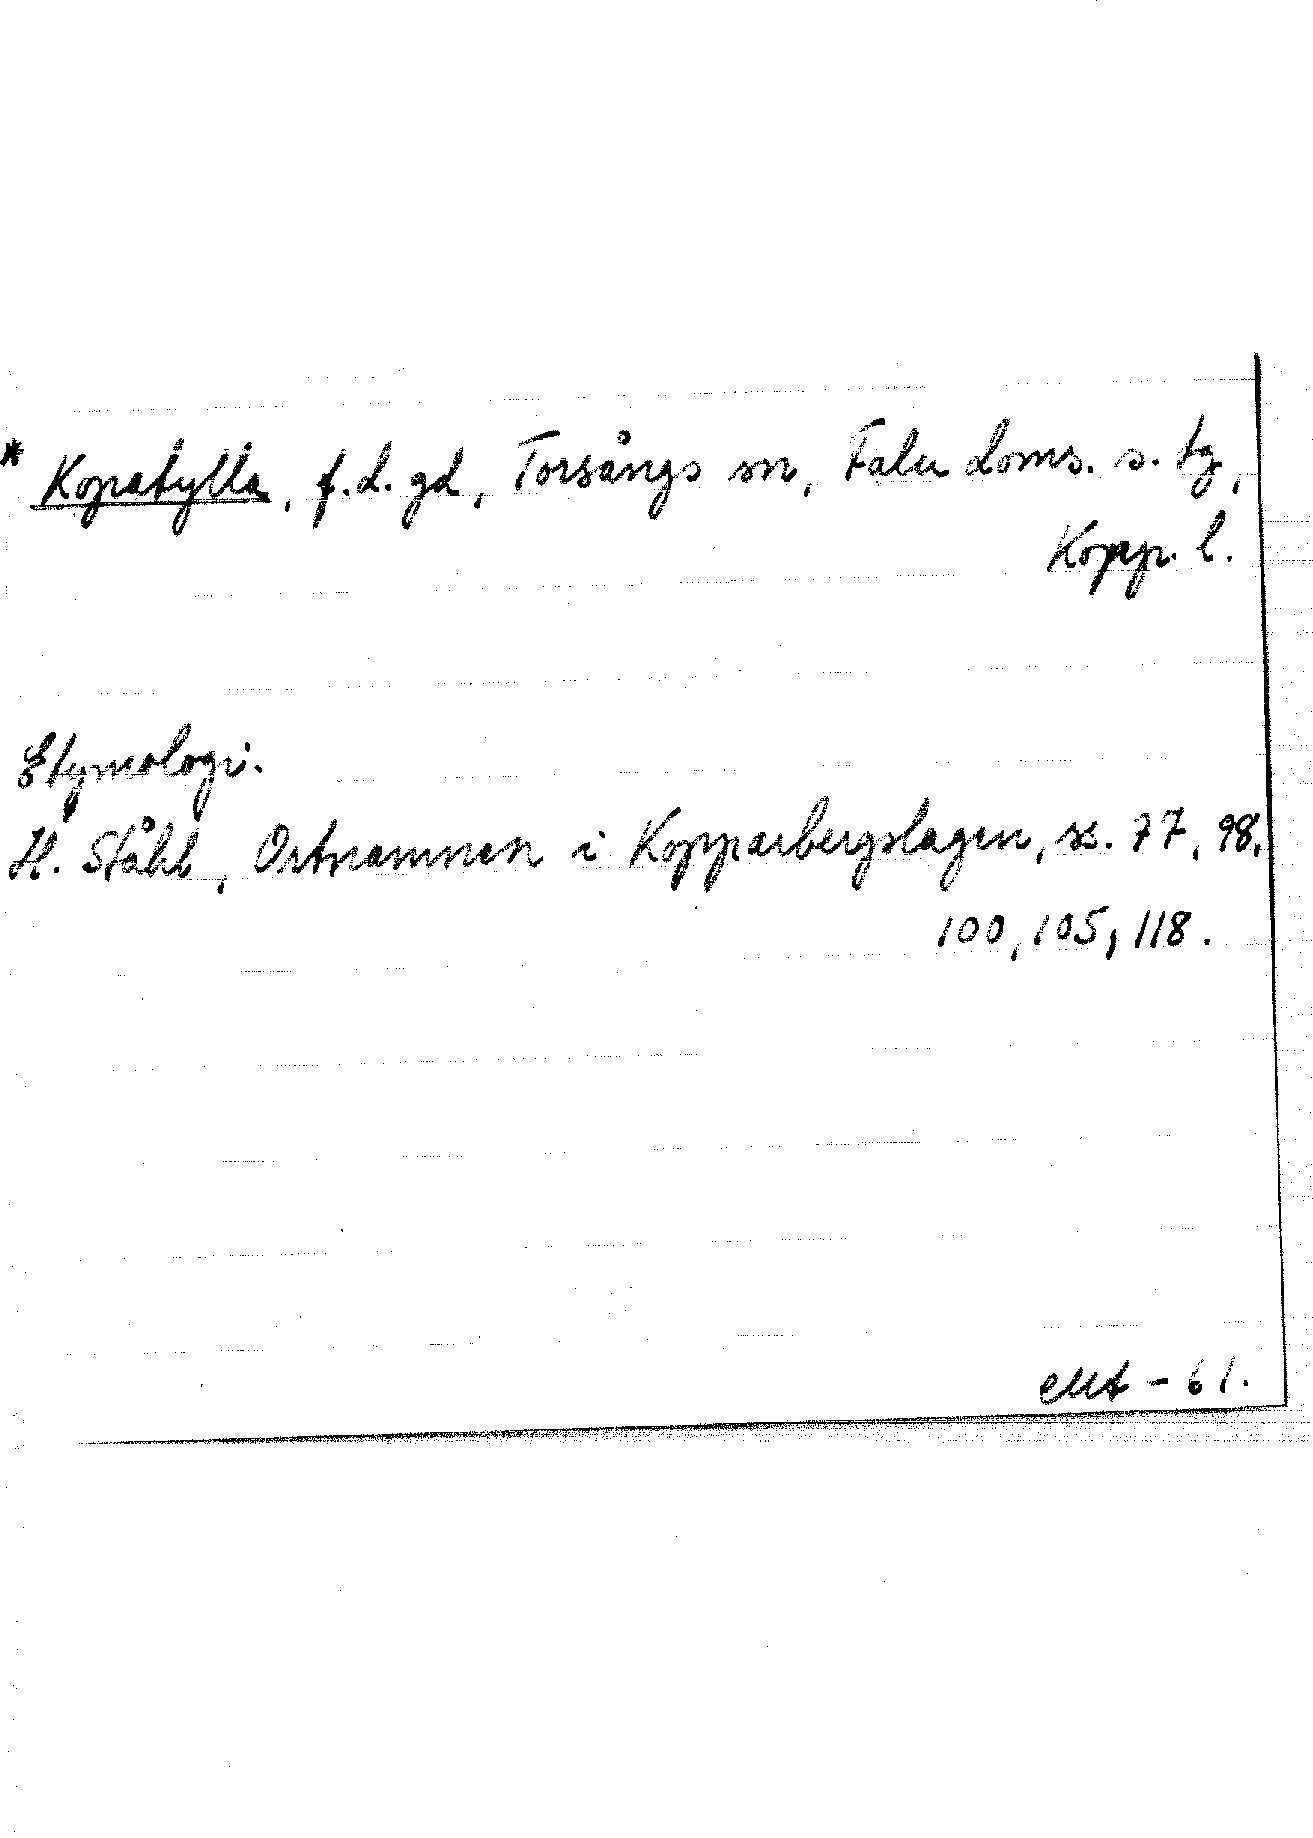 * Kopatylla, f.d. gd, Torsångs sn, Falu doms. s. tg,
Kopp. l.
Etymologi.
H. Ståhl, Ortnamnen i Kopparbergslagen, ss. 77, 98,
100, 105, 118.
- 61.